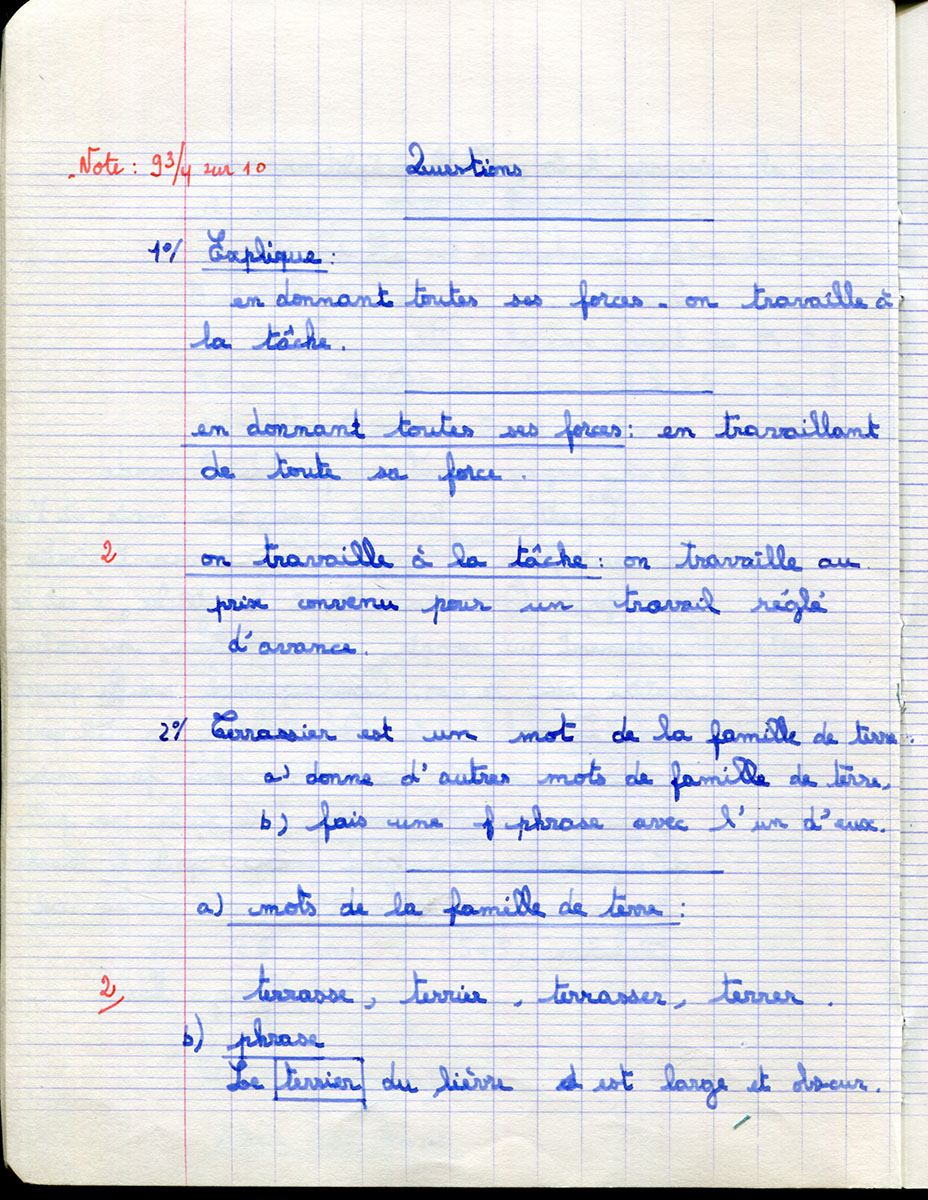 Note : 9 3/4 sur 10
Questions
1°/ Explique :
en donnant toutes ses forces - on travaille à
la tâche.
en donnant toutes ses forces : en travaillant
de toute sa force.
2 on travaille à la tâche : on travaille au
prix convenu pour un travail réglé
d'avance.
2°/ Terrassier est un mot de la famille de terre.
a) donne d'autres mots de famille de terre.
b) fais une phrase avec l'un d'eux.
a) mots de la famille de terre :
2 terrasse, terrier, terrasser, terrer.
b) phrase
Le terrier du lièvre est large et obscur.